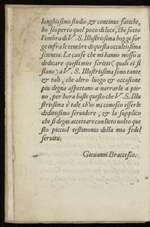 longhissimo studio, & continue fatiche,
ho scoperto quel poco di luce, che sotto
l'ombra di V. S. Illustrissima hog gi for
ge infra le tenebre di questa occultissima
scienza. Le cause che mi hanno mosso a
dedicare questi miei scritti (quali essi si
siano) a V. S. Illustrissima sono tante
& tali, che altro luogo & occasione
piu degna aspettano a narrarle a pie
no, per hora basti questo che V. S. Illu
strissima è tale ch'io mi conosco esserle
deditissimo servidore, & la supplico
che si degni accettare con lieto volto que
sto picciol testimonio della mia fedel
servitu.
Giovanni Braccesco.